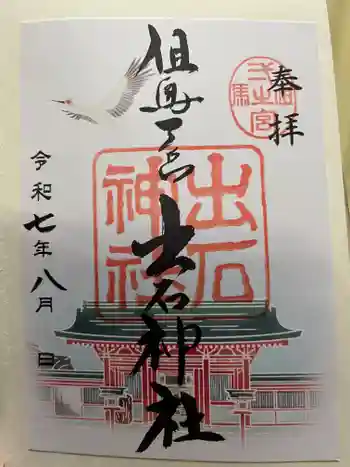 奉拝
但馬一宮
出石神社
出石
神社
令和七年八月 日